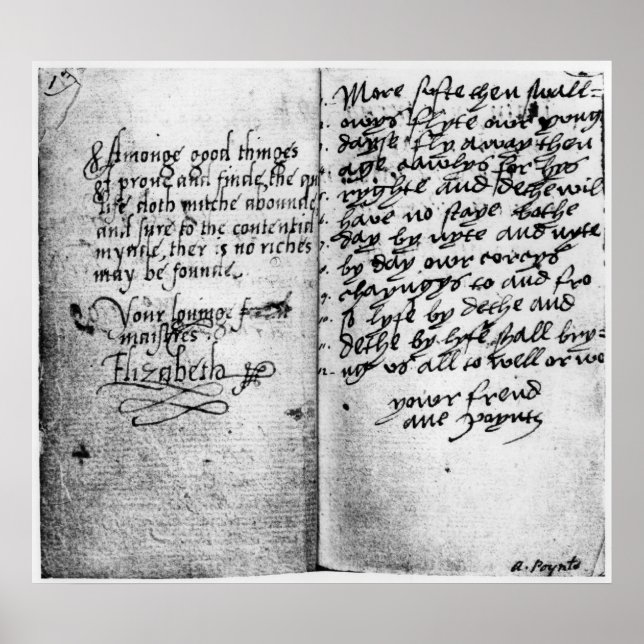 17
Amonge good thinges
I prove and finde, the qu
life doth mutche abounde
and sure to the contentid
mynde, ther is no riches
may be founde.
Your lovinge
maistres
Elizabeth
More syfte then swall=
owys flyte owr yong
dayse fly away then
age cawlys for hys
ryghte and dethe wil
have no staye bothe
day by nyte and nyte
by day owr corcys
chayngys to and fro
so lyfe by dethe and
dethe by lyfe shall bry=
ng us all to well or wo
yowr frend
ane Poynts
a. Poynts